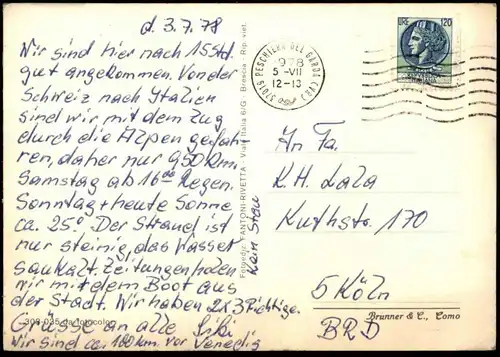 d. 3.7.78
Wir sind hier nach 15 Std.
gut angekommen. Von der
Schweiz nach Italien
sind wir mit dem Zug
durch die Alpen gefah-
ren, daher nur 950 km.
Samstag ab 16 00 Regen.
Sonntag + heute Sonne
ca. 25°. Der Strand ist
nur steinig, das Wasser
saukalt. Zeitungen holen
wir mit dem Boot aus
der Stadt. Wir haben 2 x 3 Richtige.
Grüsse an alle
Wir sind ca. 180 km. vor Venedig
Kein Stau
Fotoedir. FANTONI-RIVETTA - Viale Italia 6/G - Brescia - Rip. viet.
37019 PESCHIERA DEL GARDA (VR)
1978
5-VII
12-13
LIRE 120
An Fa.
K.H. Lala
Kuthstr. 170
5 Köln
BRD
Brunner & C., Como
fotocolor